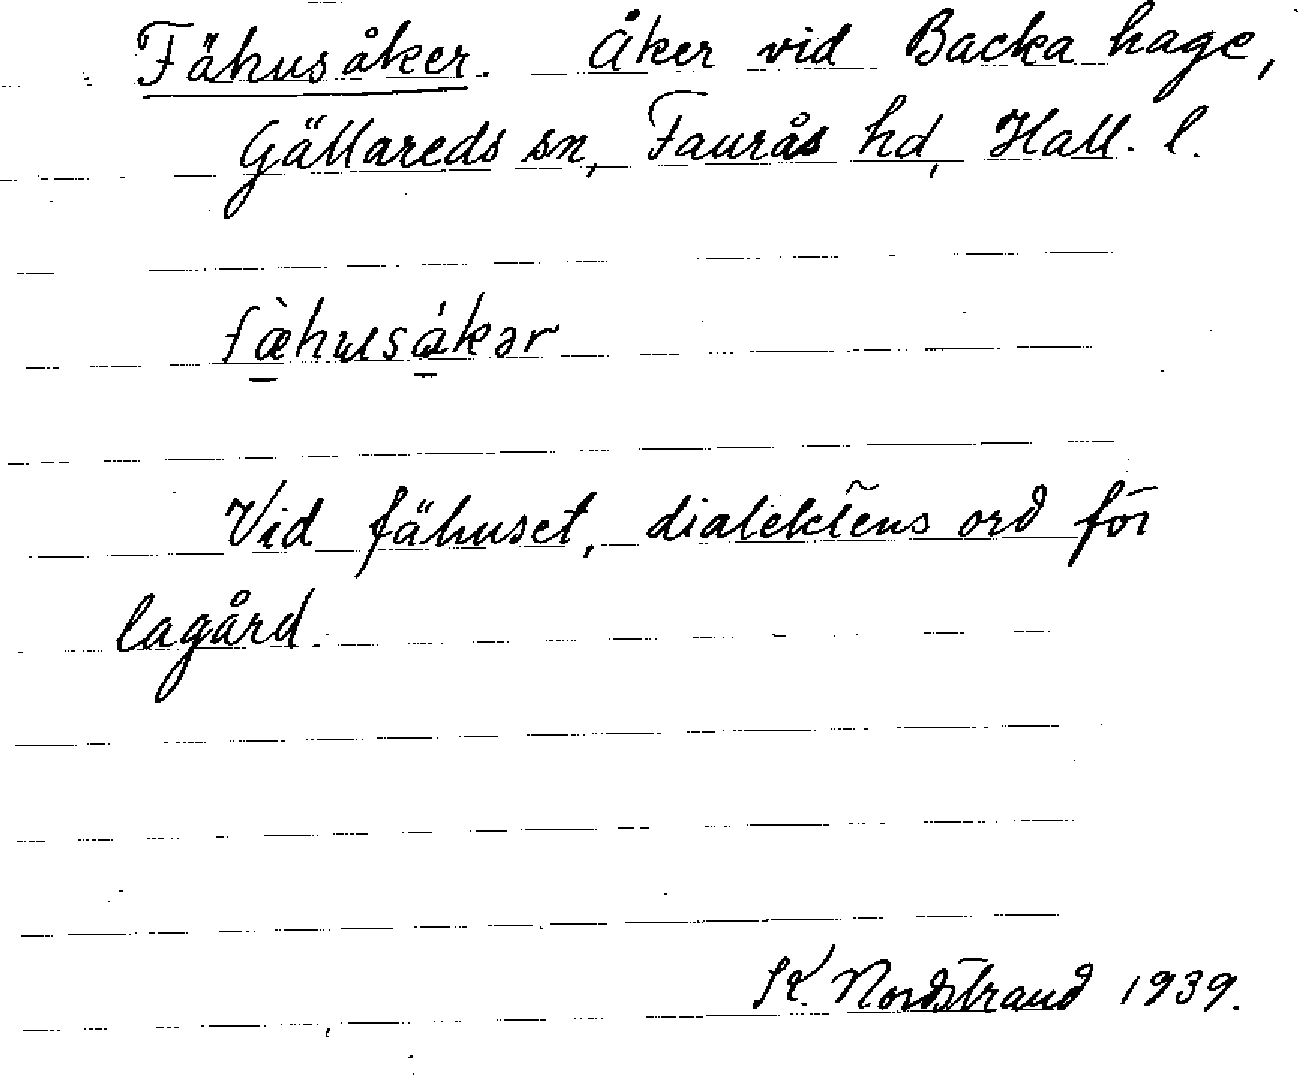 Fähusåker. Åker vid Backa hage,
Gällareds sn, Faurås hd, Hall. l.
fæ̀husákər
Vid fähuset, dialektens ord för
lagård.
K. Nordstrand 1939.